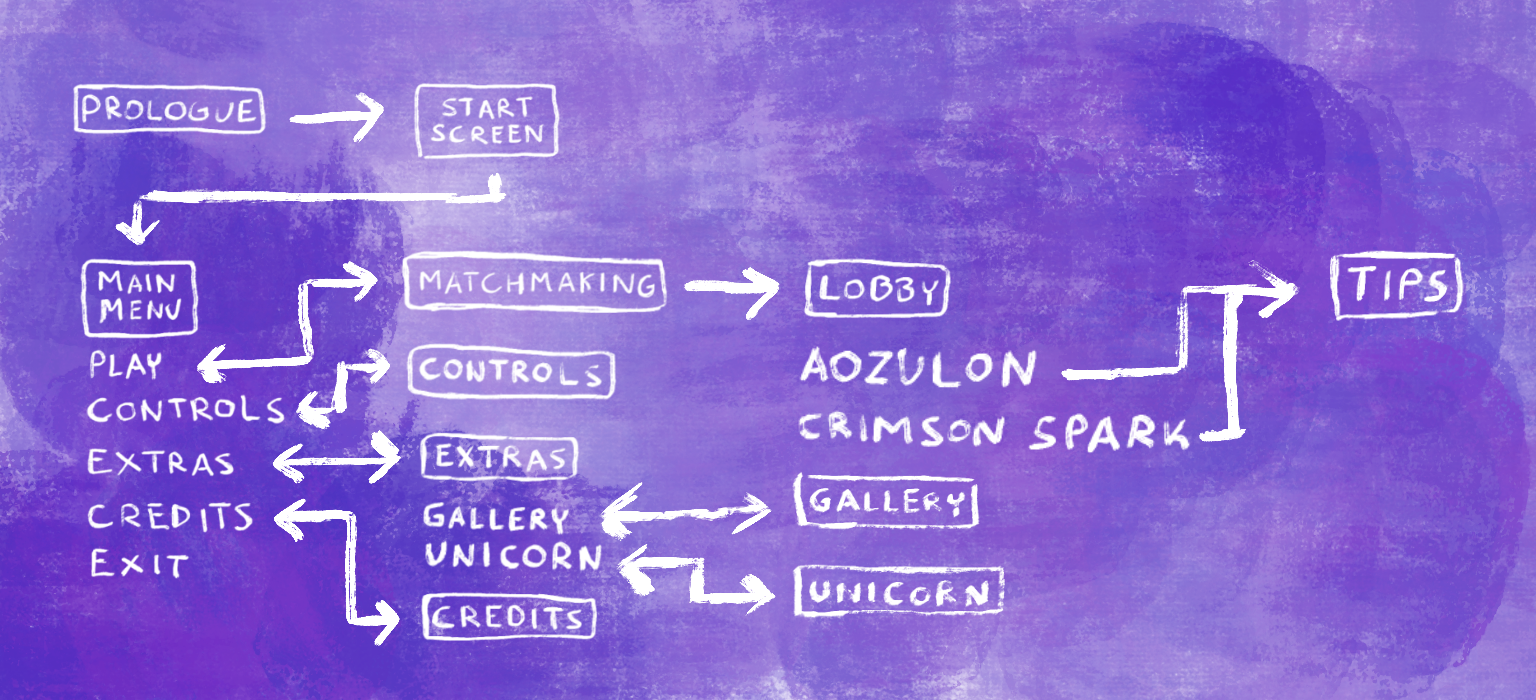 PROLOGUE
START
SCREEN
MAIN
MENU
PLAY
CONTROLS
EXTRAS
CREDITS
EXIT
MATCHMAKING
CONTROLS
EXTRAS
GALLERY
UNICORN
CREDITS
LOBBY
AOZULON
CRIMSON SPARK
GALLERY
UNICORN
TIPS